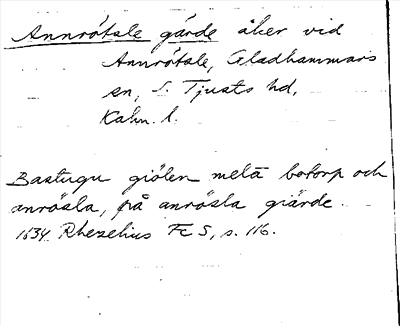 Annrótsle gärde åker vid
Annrótsle, Gladhammars
sn, S. Tjusts hd,
Kalm. l.
Bastugu giölen mela botorp och
anrösla, på anrösla giärde.
1634. Rhezelius Fc 5, s. 116.